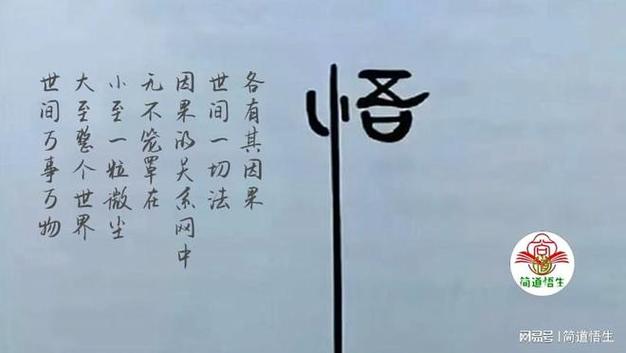 世间万事万物
大至整个世界
小至一粒微尘
无不笼罩在
因果的关系网中
世间一切法
各有其因果
悟
简道悟生
网易号 | 简道悟生